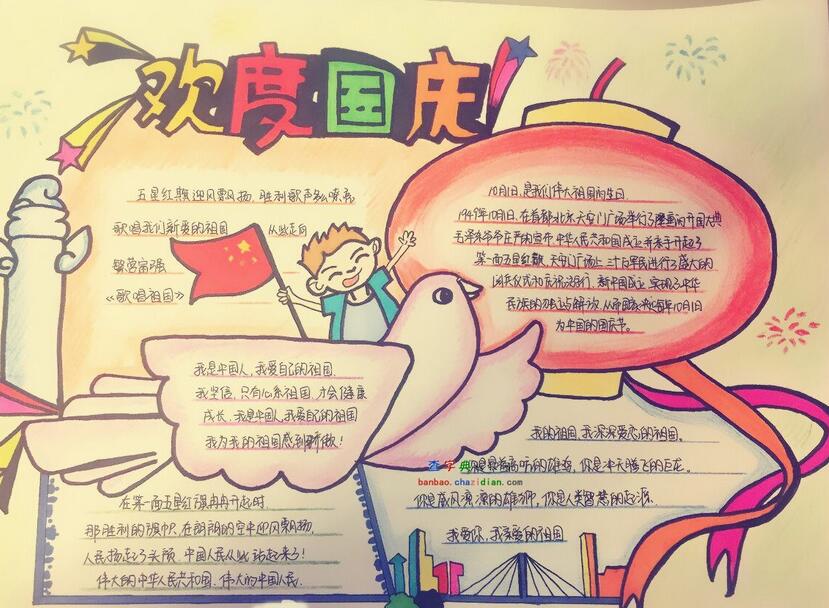 欢度国庆
五星红旗迎风飘扬,胜利歌声多么嘹亮
歌唱我们亲爱的祖国 从此走向
繁荣富强
《歌唱祖国》
10月1日,是我们伟大祖国的生日.
1949年10月1日,在首都北京天安门广场举行了隆重的开国大典
毛泽东爷爷庄严的宣布中华人民共和国成立并亲手升起了
第一面五星红旗,天安门广场上三十万军民进行了盛大的
阅兵仪式和庆祝游行.新中国成立实现了中华
民族的独立与解放,从而
10月1日
为中国的国庆节。
我是中国人,我爱自己的祖国.
我坚信,只有心系祖国,才会健康
成长,我是中国人,我爱自己的祖国
我为我的祖国感到骄傲!
我的祖国,我深深爱恋的祖国.
你是
高昂的雄鸡,你是冲天腾飞的巨龙.
你是威风凛凛的雄狮,你是人类智慧的起源.
我爱你,我亲爱的祖国
在第一面五星红旗冉冉升起时.
那胜利的旗帜,在朗朗的空中迎风飘扬.
人民扬起了头颅,中国人民从此站起来了!
伟大的中华人民共和国,伟大的中国人民.
查字典
banbao.chazidian.com